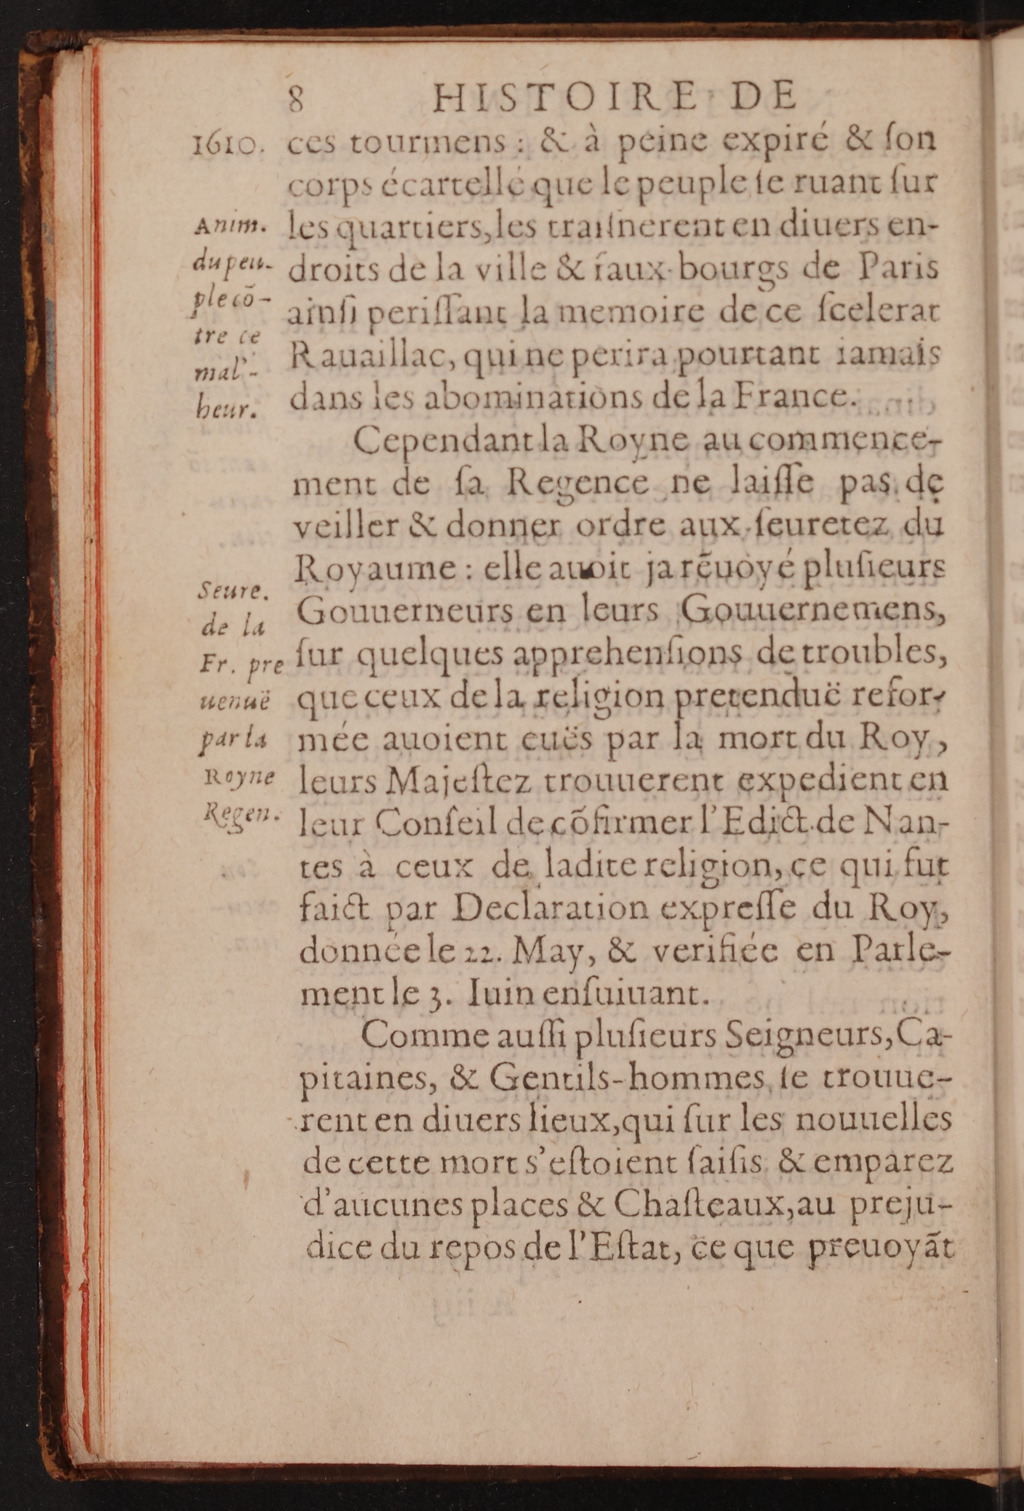 8 HISTOIRE DE
1610.
ces tourmens : & à peine expiré & ſon
corps écartellé que le peuple ſe ruant ſur
les quartiers, les traiſnerent en diuers en-
droits de la ville & faux-bourgs de Paris
ainſi periſſant la memoire de ce ſcelerat
Rauaillac, qui ne perira pourtant iamais
dans les abominations de la France.
Anim.
du peu-
ple cõ-
tre ce
mal-
heur.
Cependant la Royne au commence-
ment de ſa Regence ne laiſſe pas de
veiller & donner ordre aux ſeuretez du
Royaume : elle auoit ja rẽuoyé pluſieurs
Gouuerneurs en leurs Gouuernemens,
ſur quelques apprehenſions de troubles,
que ceux de la religion pretenduë refor-
mée auoient euës par la mort du Roy,
leurs Majeſtez trouuerent expedient en
leur Conſeil de cõfirmer l'Edict de Nan-
tes à ceux de ladite religion, ce qui fut
faict par Declaration expreſſe du Roy,
donnée le 22. May, & verifiée en Parle-
ment le 3. Iuin enſuiuant.
Seure.
de la
Fr. pre
uenuë
par la
Royne
Regen.
Comme auſſi pluſieurs Seigneurs, Ca-
pitaines, & Gentils-hommes ſe trouue-
rent en diuers lieux, qui ſur les nouuelles
de cette mort s'eſtoient ſaiſis & emparez
d'aucunes places & Chaſteaux, au preju-
dice du repos de l'Eſtat, ce que preuoyãt